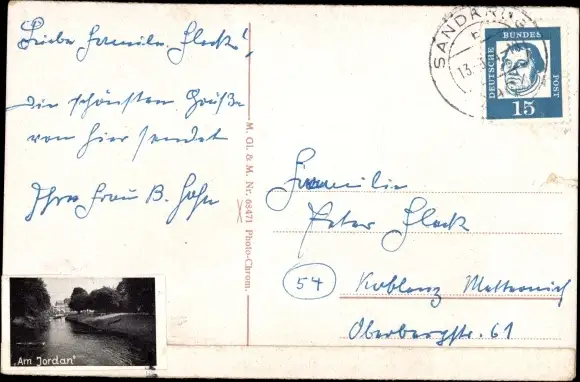 Liebe Familie Fleck!
Die schönsten Grüße
von hier sendet
Ihre Frau B. Hahn
"Am Jordan"
M. Gl. & M. Nr. 68471 Photo-Chrom.
SANDKRUG
13.
DEUTSCHE BUNDES POST
15
Familie
Peter Fleck
54 Koblenz Metternich
Oberbergstr. 61